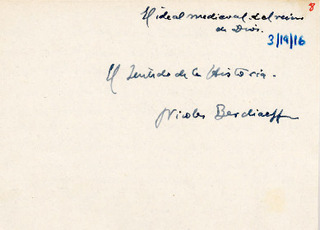 8
El ideal medieval del reino
de Dios.
3/19/16
El Sentido de la Historia.
Nicolas Berdiaeff